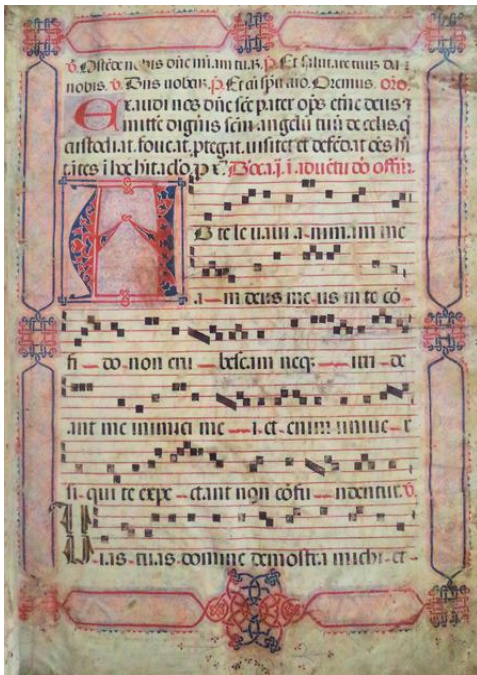 ℣. Ostēde nobis dn̄e mi.am tu.aȝ. ℟. Et salut.are tuus da
nobis. ℣. Dn̄s uobisc. ℟. Et cū sp̄it.uio. Oremus. oro.
Ex.audi nos dn̄e sc̄e p.ater op̄s et̄ne deus ⁊
mitte dign̄is sc̄m angelū tuū de celis. q̄
custodi.at. foue.at. p̄teg.at. uisitet et defēd.at oēs
Do.c.a. j. i aduētu do offiū.
Ad te le u.aui a.nim.am me
a — m deus me us in te cō
fi — do non eru — besc.am neq; — irri de
.ant me inimici me — i. et enim uniue — r
si qui te expe — ct.ant non cōfu — ndentur. ℣.
Ui.as tu.as domine demōstr.a michi et —